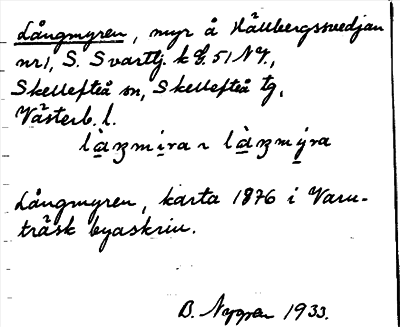 Långmyren, myr å Hällbergssvedjan
nr 1, S. Svarttj. k bl. 51 NV,
Skellefteå sn, Skellefteå tg,
Västerb. l.
làŋmìra ~ làŋmýra
Långmyren, karta 1876 i Varu-
träsk byaskrin.
B. Nygren 1933.